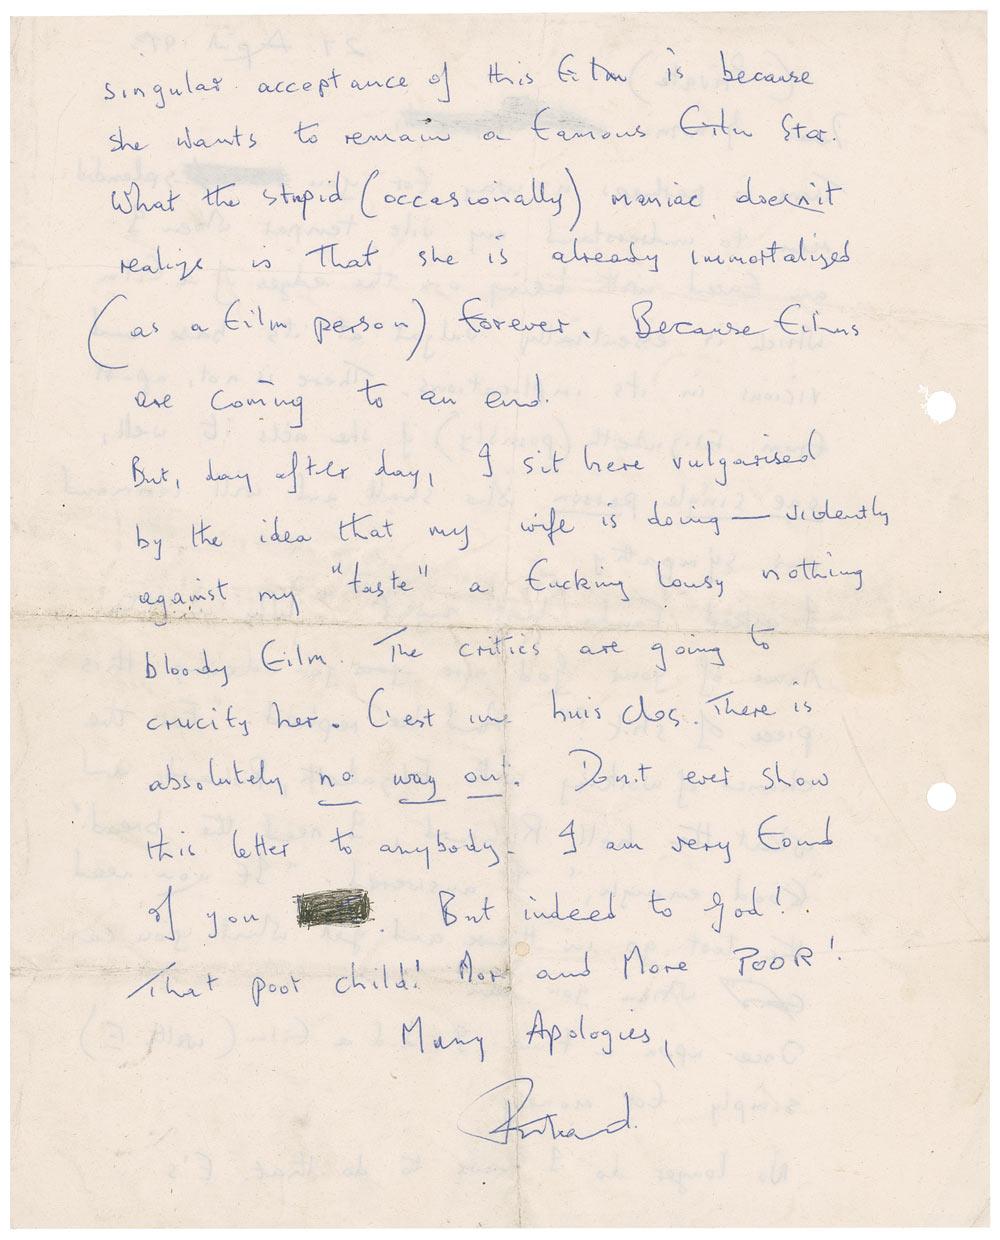 singular acceptance of this film is because
she wants to remain a famous film star.
What the stupid (occasionally) maniac doesn't
realize is that she is already immortalized
(as a film person) forever. Because films
are coming to an end.
But, day after day, I sit here vulgarised
by the idea that my wife is doing — violently
against my "taste" a fucking lousy nothing
bloody film. The critics are going to
crucify her. C'est une huis clos. There is
absolutely no way out. Don't ever show
this letter to anybody. I am very fond
of you . But indeed to God!
That poor child! More and More POOR!
Many Apologies,
Richard.